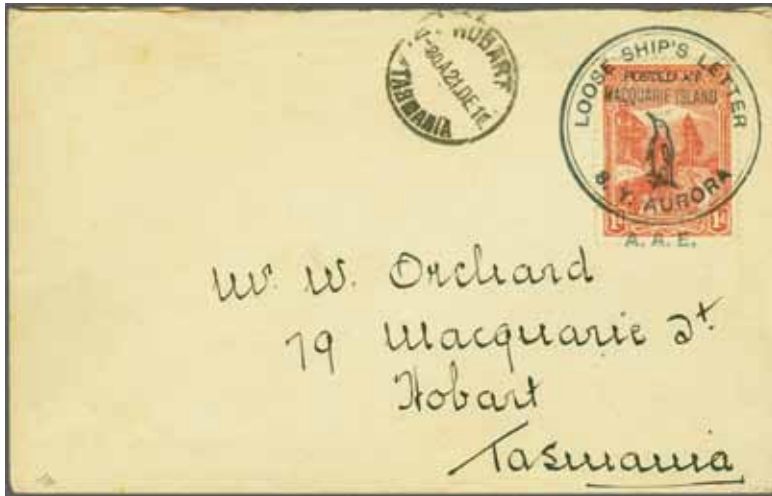 HOBART
-30A21.DE.1
TASMANIA
LOOSE SHIP'S LETTER
POSTED AT
MACQUARIE ISLAND
S. Y. AURORA
1D 1D
A. A. E.
Mr. W. Orchard
79 Macquarie St.
Hobart
Tasmania